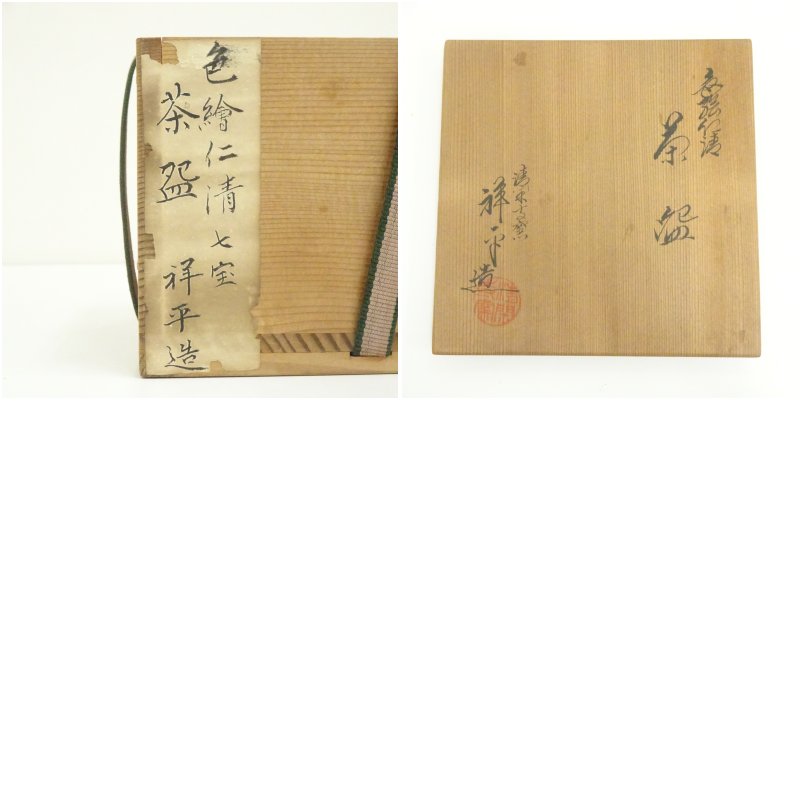 色繪仁清七宝
茶盌
祥平造
色絵仁清
茶盌
清水寺窯
祥平造